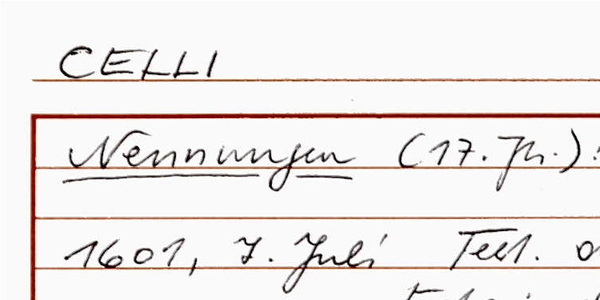 CELLI
Nennungen (17. Jh.):
1601, 7. Juli Test. o